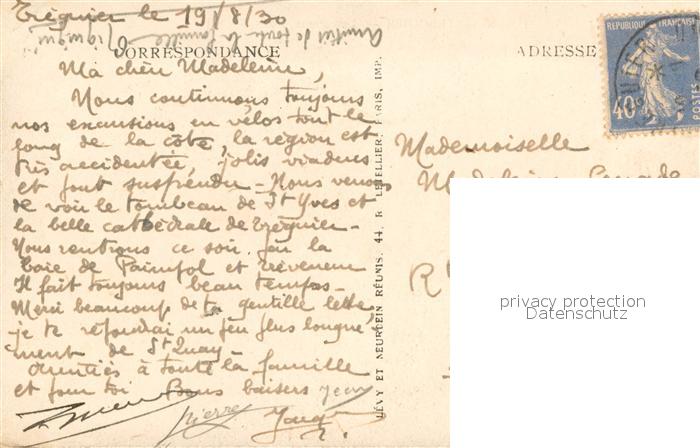 Tréguier le 19/8/30
Amitiés de toute la famille
CORRESPONDANCE
ADRESSE
Ma chère Madeleine,
Nous continuons toujours
nos excursions en vélos tout le
long de la côte, la région est
très accidentée, jolis viaducs
et pont suspendu - Nous venons
de voir le tombeau de St Yves et
la belle cathédrale de Tréguier -
Nous rentrons ce soir par la
baie de Paimpol et Tréveneuc
Il fait toujours beau temps -
Merci beaucoup de ta gentille lettre
je te répondrai un peu plus longue
ment de St Quay -
Amitiés à toute la famille
et pour toi Bons baisers Jean
Pierre
LÉVY ET NEURDEIN RÉUNIS, 44, R. LETELLIER, PARIS, IMP.
RÉPUBLIQUE FRANÇAISE
40c
POSTES
Mademoiselle
Madeleine
R
privacy protection
Datenschutz